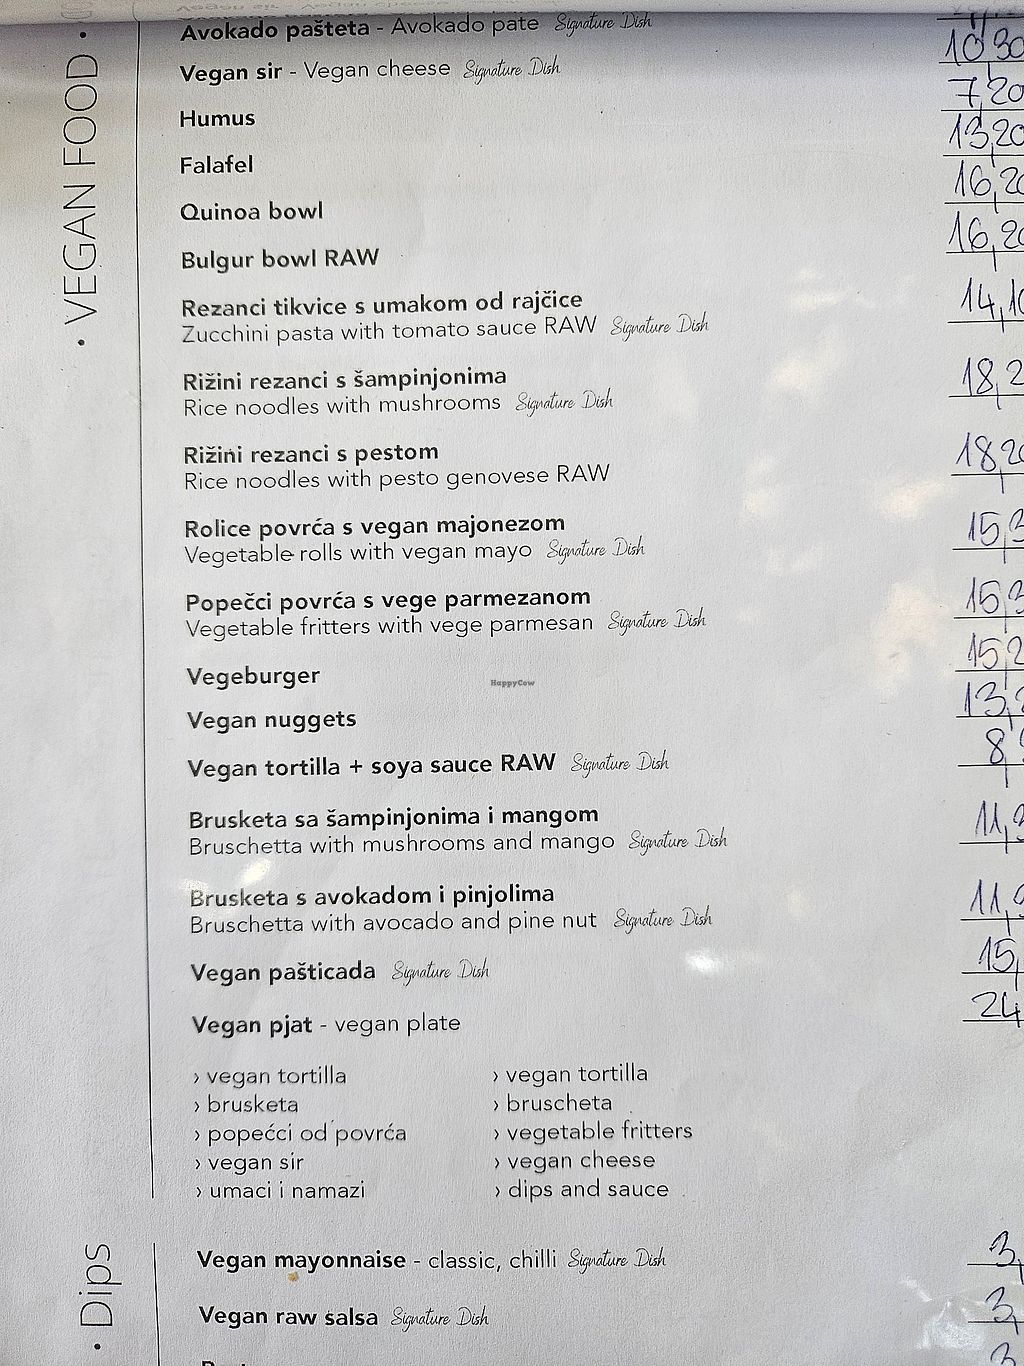 • VEGAN FOOD •
Avokado pašteta - Avokado pate Signature Dish
10,30
Vegan sir - Vegan cheese Signature Dish
7,20
Humus
13,20
Falafel
16,20
Quinoa bowl
16,20
Bulgur bowl RAW
14,10
Rezanci tikvice s umakom od rajčice
Zucchini pasta with tomato sauce RAW Signature Dish
18,2
Rižini rezanci s šampinjonima
Rice noodles with mushrooms Signature Dish
18,20
Rižini rezanci s pestom
Rice noodles with pesto genovese RAW
15,3
Rolice povrća s vegan majonezom
Vegetable rolls with vegan mayo Signature Dish
15,3
Popečci povrća s vege parmezanom
Vegetable fritters with vege parmesan Signature Dish
15,2
Vegeburger
13,2
Vegan nuggets
8,
Vegan tortilla + soya sauce RAW Signature Dish
11,3
Brusketa sa šampinjonima i mangom
Bruschetta with mushrooms and mango Signature Dish
11,
Brusketa s avokadom i pinjolima
Bruschetta with avocado and pine nut Signature Dish
15,
Vegan pašticada Signature Dish
24
Vegan pjat - vegan plate
› vegan tortilla
› brusketa
› popećci od povrća
› vegan sir
› umaci i namazi
› vegan tortilla
› bruscheta
› vegetable fritters
› vegan cheese
› dips and sauce
• Dips
Vegan mayonnaise - classic, chilli Signature Dish
3,
Vegan raw salsa Signature Dish
3,
HappyCow